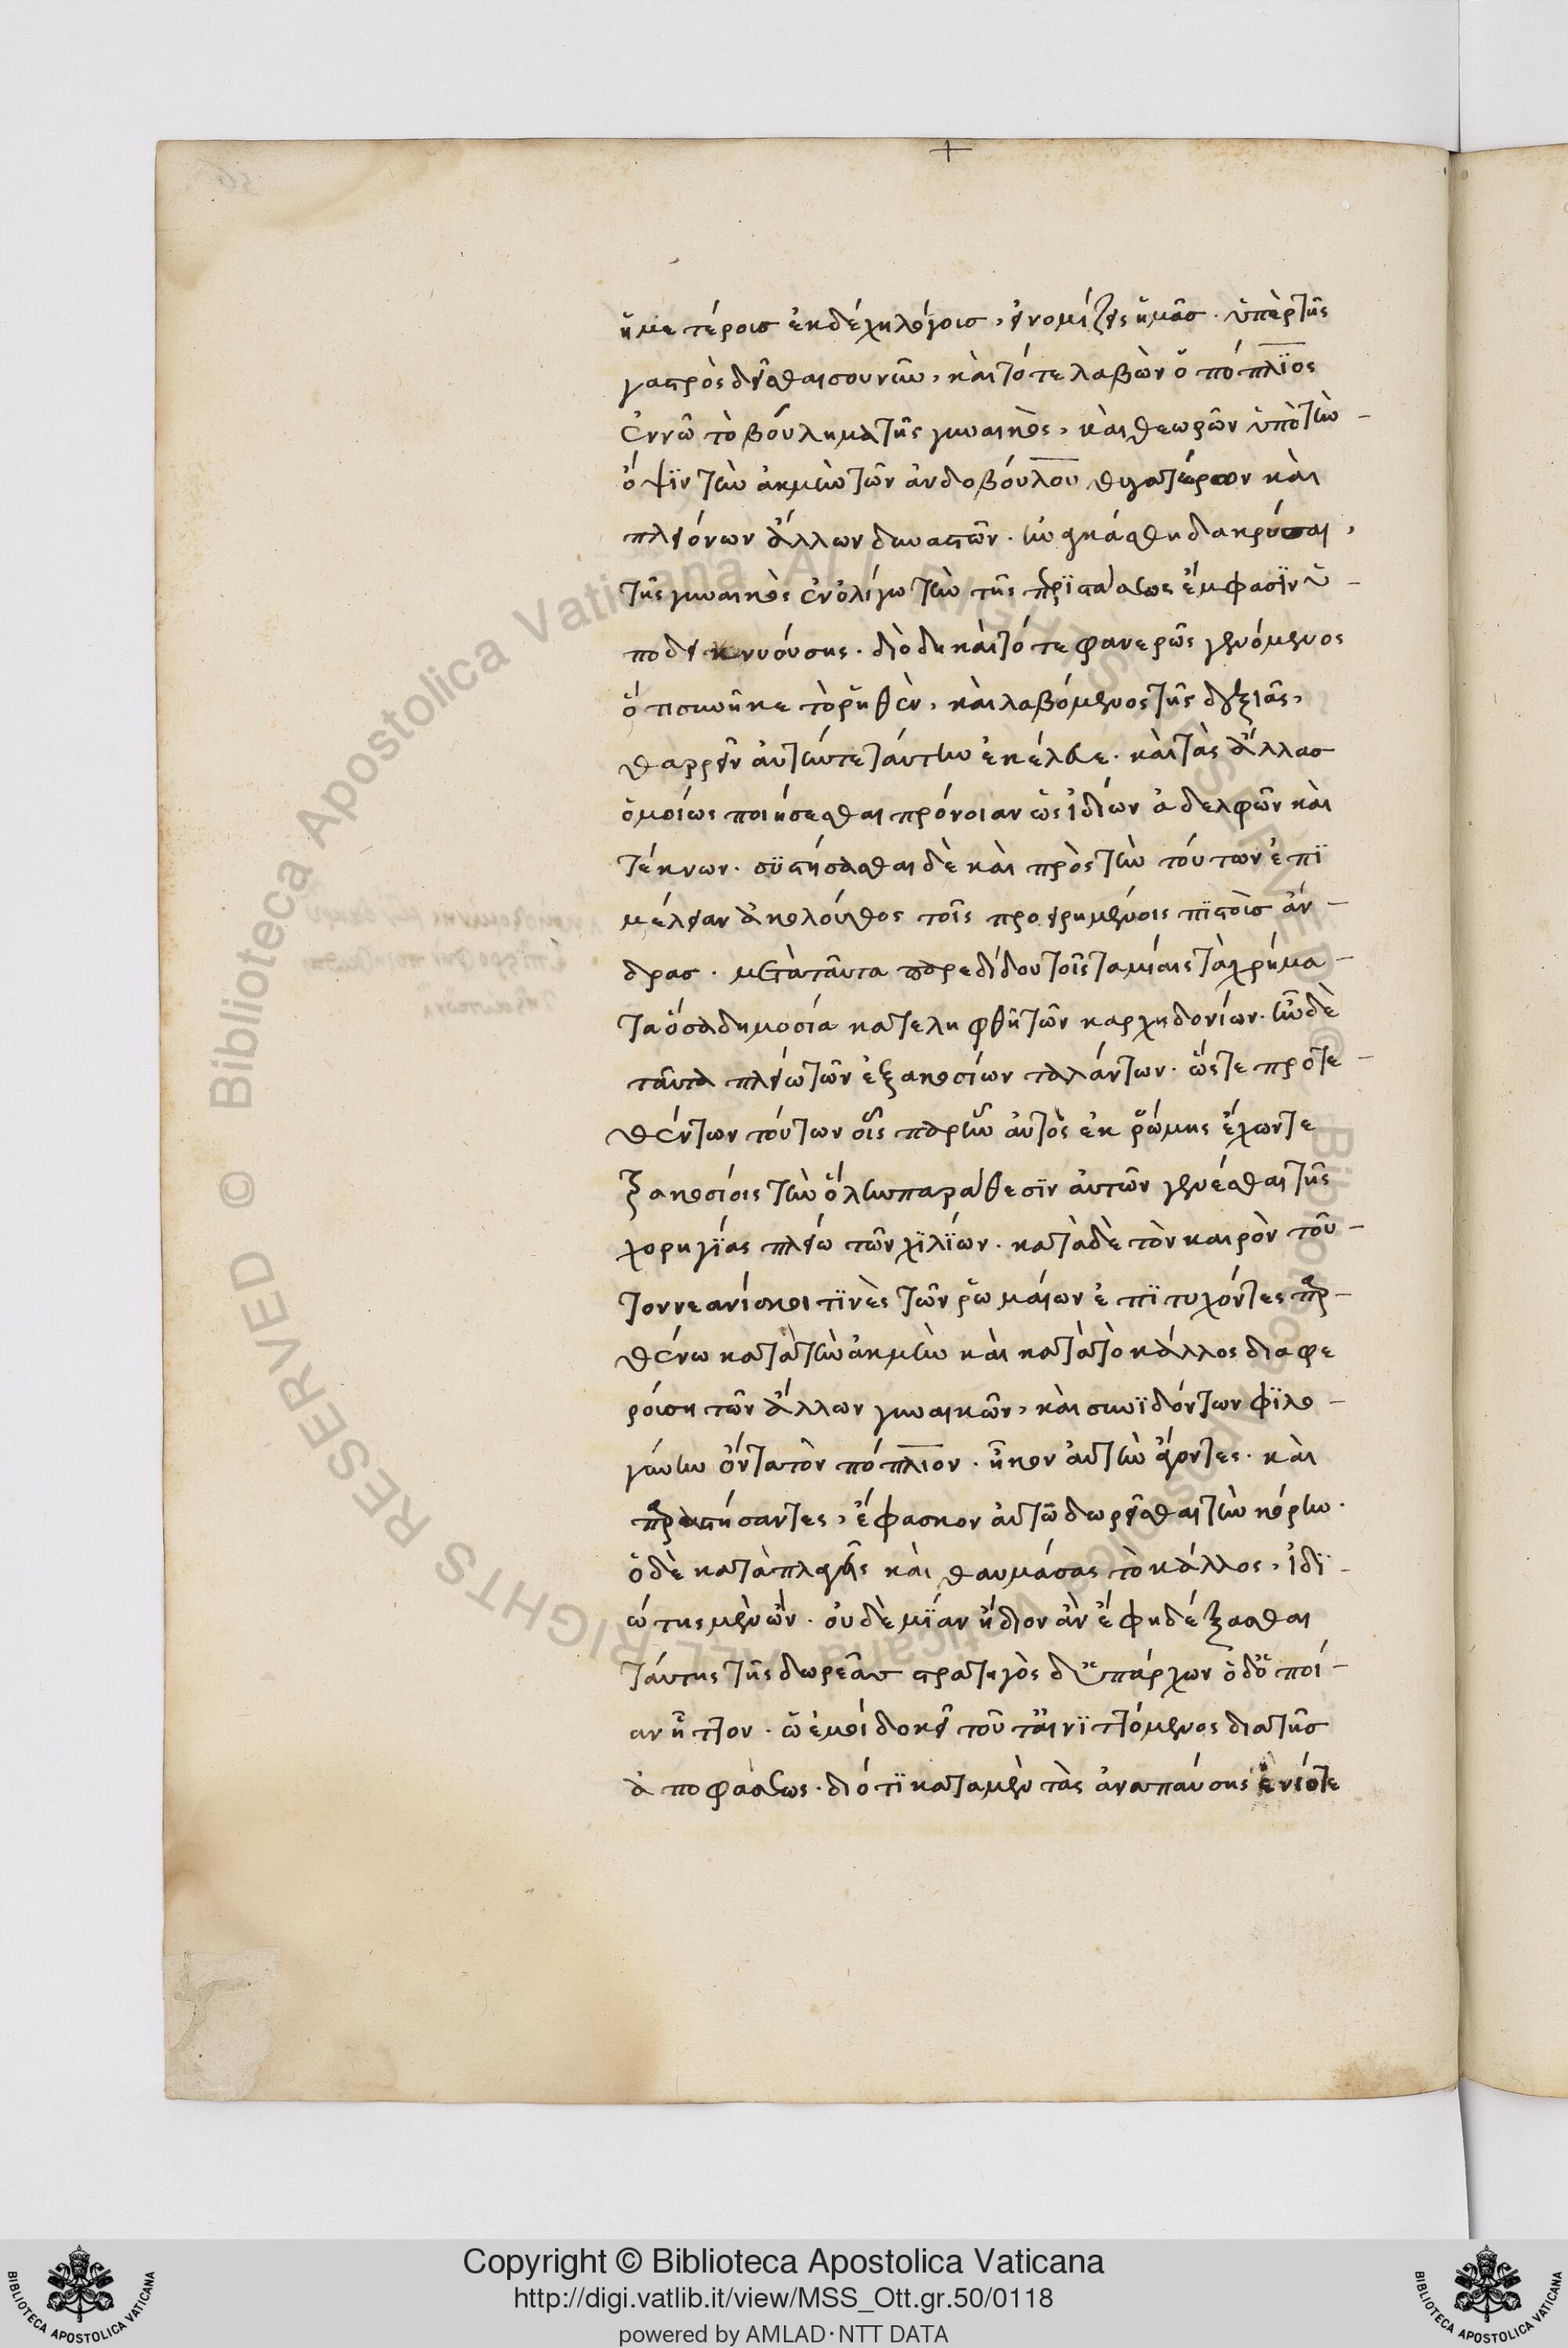 ἡμετέροις ἐκδέχῃ λόγοις, εἰ νομίζεις ἡμᾶς. ὑπὲρ τῆς
γαστρὸς δεῖσθαι σου νῦν, καὶ τότε λαβὼν ὁ πόπλϊος
ἐν νῶ τὸ βούλημα τῆς γυναικὸς, καὶ θεωρῶν ὑπὸ τὴν –
ὄψϊν τὴν ἀκμὴν τῶν ἀνδοβούλου θυγατέρων καὶ
πλειόνων ἄλλων δυναστῶν. ἠναγκάσθη δακρύσαι,
τῆς γυναικὸς ἐν ὀλίγω τὴν τῆς περϊστάσεως ἔμφασϊν ὑ –
ποδεικνυούσης. διὸ δὴ καὶ τότε φανερῶς γενόμενος
ὅτι συνῆκε τὸ ῥηθὲν, καὶ λαβόμενος τῆς δεξιᾶς,
θαρρεῖν αὐτήν τε ταύτην ἐκέλευε. καὶ τὰς ἄλλας
ὁμοίως ποιήσεσθαι πρόνοιαν ὡς ἰδίων ἀδελφῶν καὶ
τέκνων. συστήσασθαι δὲ καὶ πρὸς τὴν τούτων ἐπϊ
μέλειαν ἀκολούθως τοῖς προειρημένοις πϊστοὺς ἄν –
δρας. μετὰ ταῦτα παρεδίδου τοῖς ταμίαις τὰ χρήμα –
τα ὅσα δημοσία κατεληφθῆ τῶν καρχηδονίων. ἦν δὲ
ταῦτα πλείω τῶν ἑξακοσίων ταλάντων. ὥστε προτε –
θέντων τούτων οἷς παρῆν αὐτὸς ἐκ ῥώμης ἔχων τε
ξακοσίοις τὴν ὅλην παράθεσϊν αὐτῶν γενέσθαι τῆς
χορηγίας πλείω τῶν χϊλϊων. κατὰ δὲ τὸν καιρὸν τοῦ –
τον νεανίσκοι τϊνὲς τῶν ῥωμαίων ἐπϊτυχόντες παρ –
θένω κατὰ τὴν ἀκμὴν καὶ κατὰ τὸ κάλλος διαφε
ρούση τῶν ἄλλων γυναικῶν, καὶ συνϊδόντων φϊλο –
γύνην ὄντα τὸν πόπλιον. ἧκον αὐτὴν ἄγοντες. καὶ
παραστήσαντες, ἔφασκον αὐτῶ δωρεῖσθαι τὴν κόρην.
ὁ δὲ καταπλαγεὶς καὶ θαυμάσας τὸ κάλλος, ἰδϊ –
ώτης μὲν ὢν. οὐδεμϊαν ἥδιον ἂν ἔφη δέξασθαι
ταύτης τῆς δωρεᾶς στρατηγὸς δ' ὑπάρχων ὁδ' ὁποί –
αν ἧττον. ὡ ἐμοὶ δοκεῖ τοῦτ' αἰνϊττόμενος διὰ τῆς
ἀποφάσεως. διότϊ κατὰ μὲν τὰς ἀναπαύσης ἐνίοτε
Copyright © Biblioteca Apostolica Vaticana
http://digi.vatlib.it/view/MSS_Ott.gr.50/0118
powered by AMLAD·NTT DATA
BIBLIOTECA APOSTOLICA VATICANA
BIBLIOTECA APOSTOLICA VATICANA